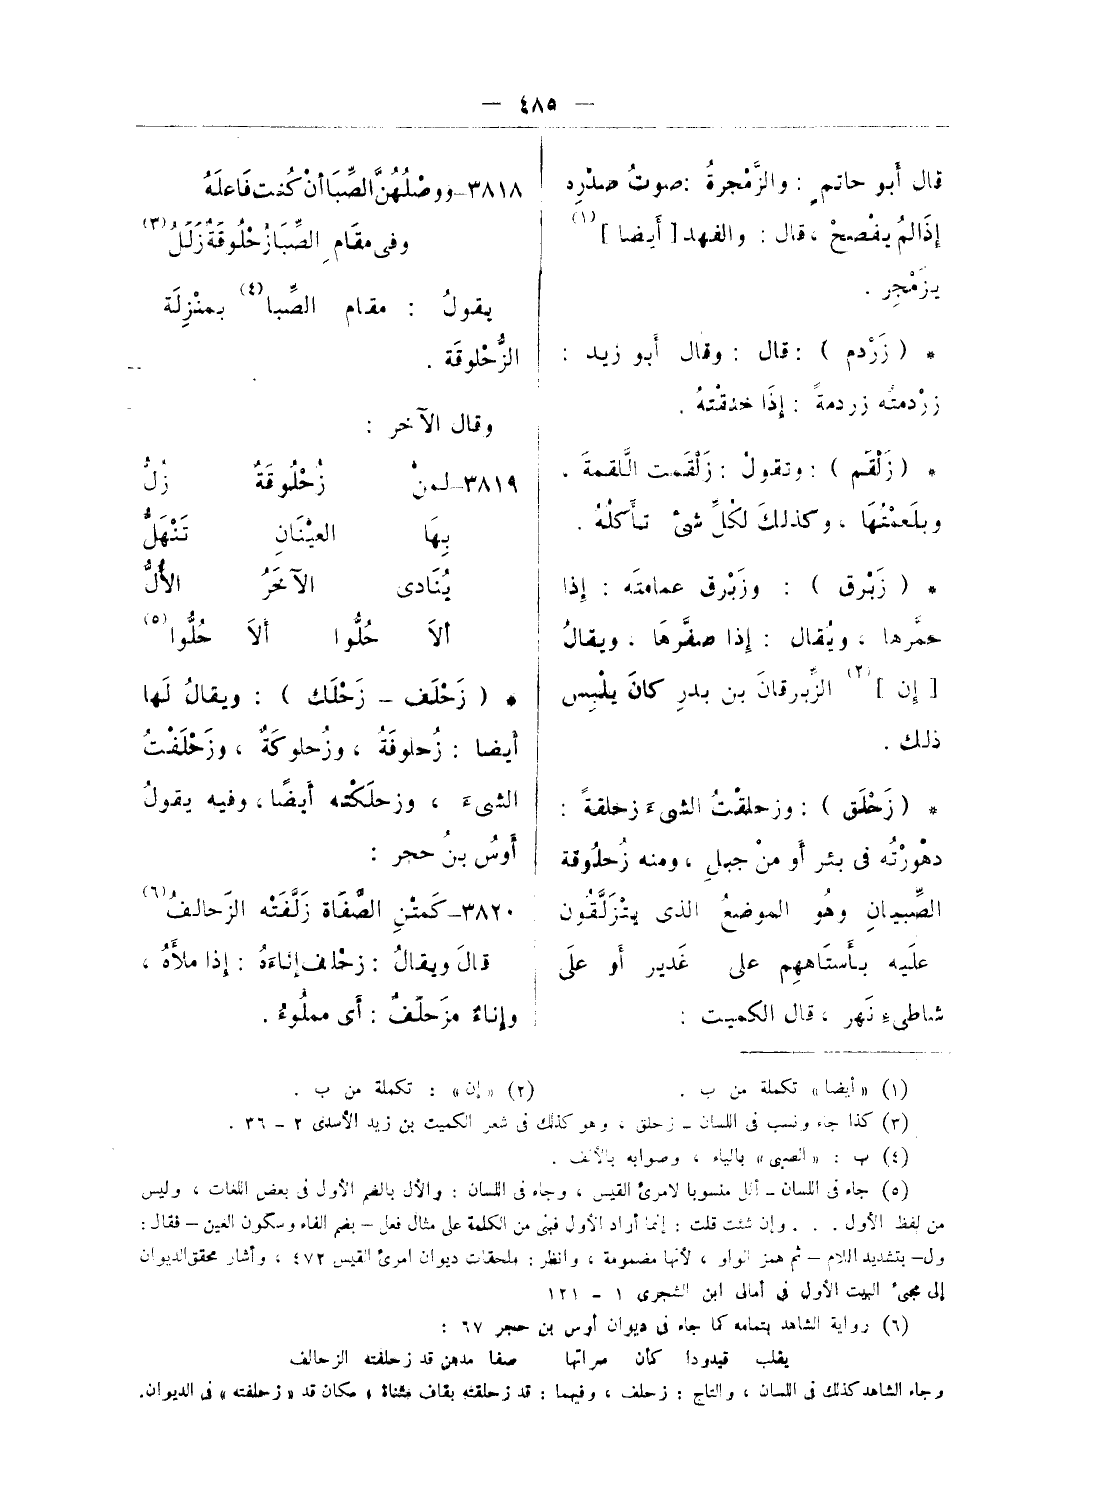 — ٤٨٥ —
قال أَبو حاتمٍ : والزَّمْجرةُ : صوتُ صدْرِه
إِذَا لمْ يفْصحْ ، قال : والفهد [ أَيضا ](١)
يزَمْجِر .
* ( زَرْدم ) : قال : وقال أَبو زيد :
زرْدمتُه زردمةً : إِذَا خنقْتهُ .
* ( زَلْقَم ) : وتقولُ : زَلْقَمت الَّلقمةَ .
وبلَعمْتُهَا ، وكذلكَ لكْلِّ شئ تأَكلْهُ .
* ( زَبْرق ) : وزَبْرق عمامتَه : إِذا
حمَّرها ، ويُقال : إِذا صفَّرهَا . ويقالُ
[ إن ](٢) الزِّبرقانَ بن بدرٍ كانَ يلْبِس
ذلك .
* ( زَحْلَق ) : وزحلقْتُ الشىءَ زحلقةً :
دهْورْتُه فى بئر أَو منْ جبلٍ ، ومنه زُحلُوقة
الصِّبيانِ وهُو الموضعُ الذى يتْزَلَّقُون
علَيه بأَستَاهِهِم على غَدير أَو علَى
شاطىءِ نَهر ، قال الكميت :
٣٨١٨ـ ووصْلُهُنَّ الصِّبَا أنْ كُنت فَاعلَهُ
وفى مقَامِ الصِّبَا زُحْلُوقَةٌ زَلَلُ(٣)
يقولُ : مقام الصِّبا(٤) بمنْزِلَة
الزُّحْلوقَة .
وقال الآخر :
٣٨١٩ـ لمنْ زُحْلُوقَةٌ زُلُّ
بِهَا العيْنَانِ تَنْهَلُّ
يُنَادى الآخَرُ الأُلُّ
أَلاَ حُلُّوا أَلاَ حُلُّوا(٥)
* ( زَحْلَف ـ زَحْلَك ) : ويقالُ لَها
أَيضا : زُحلوفَةُ ، وزُحلوكَةٌ ، وزَحْلَفْتُ
الشىءَ ، وزحلَكْته أَيضًا، وفيه يقولُ
أَوسُ بنُ حجر :
٣٨٢٠ـ كَمتْنِ الصَّفَاة زَلَّفَتْه الزَحالفُ(٦)
قالَ ويقالُ : زحْلف إِناءَهُ : إِذا ملأَهُ ،
وإِناءٌ مزَحلَفٌ : أَى مملُوءُ .
(١) « أيضا » تكملة من ب . (٢) « إن » : تكملة من ب .
(٣) كذا جاء ونسب فى اللسان ـ زحلق ، وهو كذلك فى شعر الكميت بن زيد الأسدى ٢ – ٣٦ .
(٤) ب : « الصبى » بالياء ، وصوابه بالألف .
(٥) جاء فى اللسان ـ ألل منسوبا لامرئ القيس ، وجاء فى اللسان : والأل بالضم الأول فى بعض اللغات ، وليس
من لفظ الأول . . . وإن شئت قلت : إنما أراد الأول فبنى من الكلمة على مثال فعل – بضم الفاء وسكون العين – فقال :
ول– بتشديد اللام – ثم همز الواو ، لأنها مضمومة ، وانظر : ملحقات ديوان امرئ القيس ٤٧٢ ، وأشار محقق الديوان
إلى مجئ البيت الأول فى أمالى ابن الشجرى ١ – ١٢١
(٦) رواية الشاهد بتمامه كما جاء فى ديوان أوس بن حجر ٦٧ :
يقلب قيدودا كأن سراتها صفا مدهن قد زحلفته الزحالف
وجاء الشاهد كذلك فى اللسان ، والتاج : زحلف ، وفيهما : قد زحلقته بقاف مثناة ، مكان قد « زحلفته » فى الديوان.